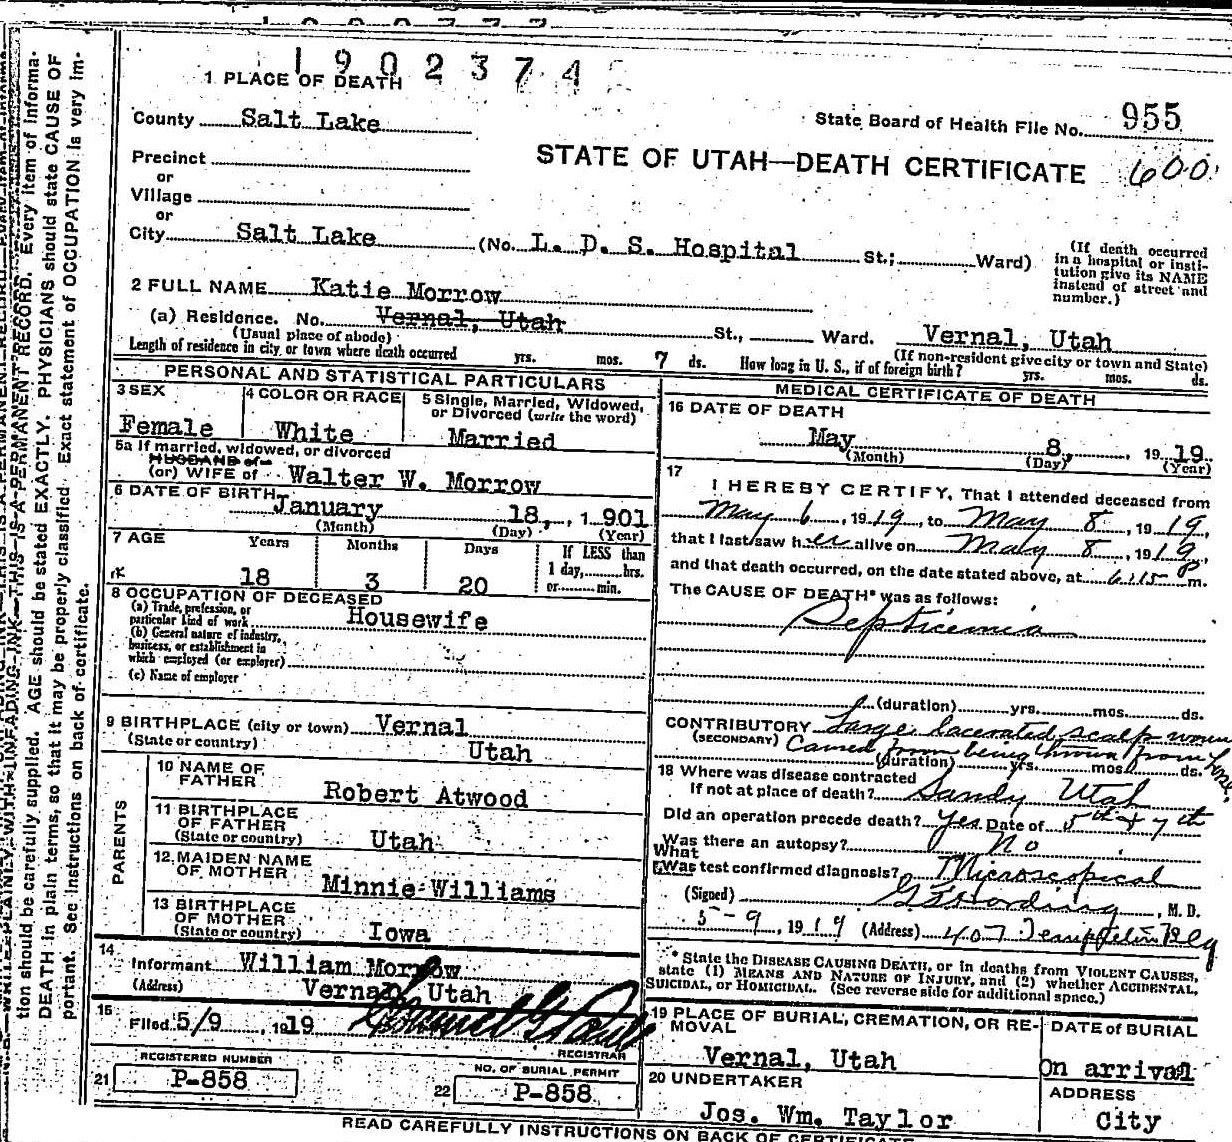 1902374
1 PLACE OF DEATH
County Salt Lake
State Board of Health File No. 955
Precinct
STATE OF UTAH—DEATH CERTIFICATE 600
or
Village
or
City Salt Lake (No. L. D. S. Hospital St.; Ward)
(If death occurred
in a hospital or insti-
tution give its NAME
instead of street and
number.)
2 FULL NAME Katie Morrow
(a) Residence. No. Vernal, Utah St., Ward. Vernal, Utah
(Usual place of abode) (If non-resident give city or town and State)
Length of residence in city or town where death occurred yrs. mos. 7 ds. How long in U. S., if of foreign birth? yrs. mos. ds.
PERSONAL AND STATISTICAL PARTICULARS
3 SEX 4 COLOR OR RACE 5 Single, Married, Widowed,
or Divorced (write the word)
Female White Married
5a If married, widowed, or divorced
HUSBAND of
(or) WIFE of Walter W. Morrow
6 DATE OF BIRTH January 18, 1901
(Month) (Day) (Year)
7 AGE Years Months Days If LESS than
1 day, hrs.
18 3 20 or min.
8 OCCUPATION OF DECEASED
(a) Trade, profession, or
particular kind of work Housewife
(b) General nature of industry,
business, or establishment in
which employed (or employer)
(c) Name of employer
9 BIRTHPLACE (city or town) Vernal
(State or country) Utah
PARENTS
10 NAME OF
FATHER Robert Atwood
11 BIRTHPLACE
OF FATHER
(State or country) Utah
12 MAIDEN NAME
OF MOTHER Minnie Williams
13 BIRTHPLACE
OF MOTHER
(State or country) Iowa
14
Informant William Morrow
(Address) Vernal, Utah
15
Filed 5/9, 1919
REGISTRAR
REGISTERED NUMBER NO. OF BURIAL PERMIT
21 P-858 22 P-858
MEDICAL CERTIFICATE OF DEATH
16 DATE OF DEATH
May 8, 1919
(Month) (Day) (Year)
17
I HEREBY CERTIFY, That I attended deceased from
May 6, 1919, to May 8, 1919,
that I last saw her alive on May 8, 1919,
and that death occurred, on the date stated above, at 6:15 P m.
The CAUSE OF DEATH* was as follows:
Septicemia
(duration) yrs. mos. ds.
CONTRIBUTORY Large lacerated scalp wound
(SECONDARY) Caused from being thrown from horse.
(duration) yrs. mos. ds.
18 Where was disease contracted
If not at place of death? Sandy Utah
Did an operation precede death? Yes Date of 5th & 7th
Was there an autopsy? No
What
Was test confirmed diagnosis? Microscopical
(Signed) , M. D.
5-9, 1919 (Address) 407 Templeton Blg
* State the DISEASE CAUSING DEATH, or in deaths from VIOLENT CAUSES,
state (1) MEANS AND NATURE OF INJURY, and (2) whether ACCIDENTAL,
SUICIDAL, or HOMICIDAL. (See reverse side for additional space.)
19 PLACE OF BURIAL, CREMATION, OR RE-
MOVAL
DATE of BURIAL
Vernal, Utah On arrival
20 UNDERTAKER ADDRESS
Jos. Wm. Taylor City
READ CAREFULLY INSTRUCTIONS ON BACK OF CERTIFICATE
tion should be carefully supplied. AGE should be stated EXACTLY. PHYSICIANS should state CAUSE OF
DEATH in plain terms, so that it may be properly classified. Exact statement of OCCUPATION is very im-
portant. See instructions on back of certificate.